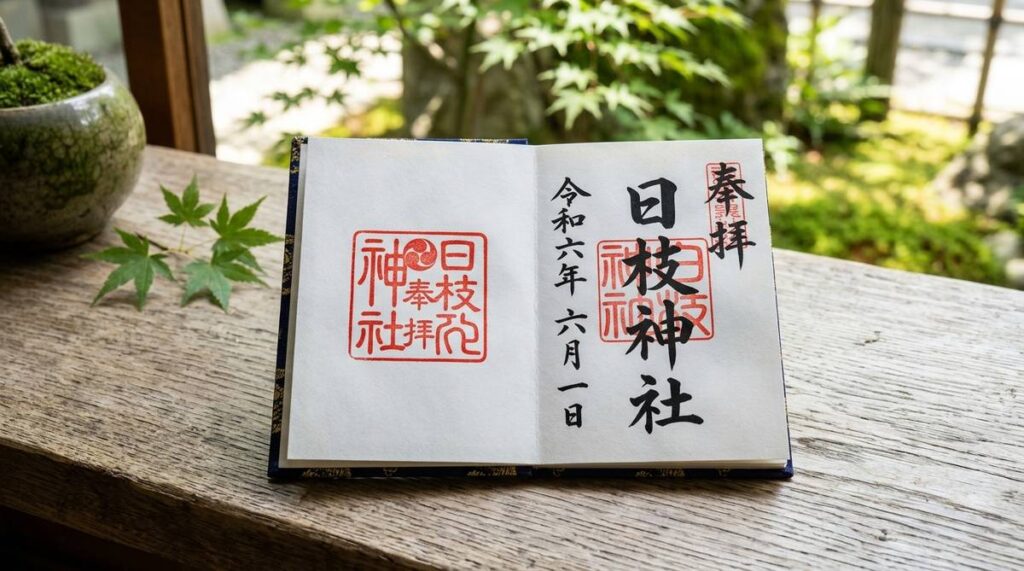 奉拝
日枝神社
令和六年 六月一日
日枝
奉拝
神社